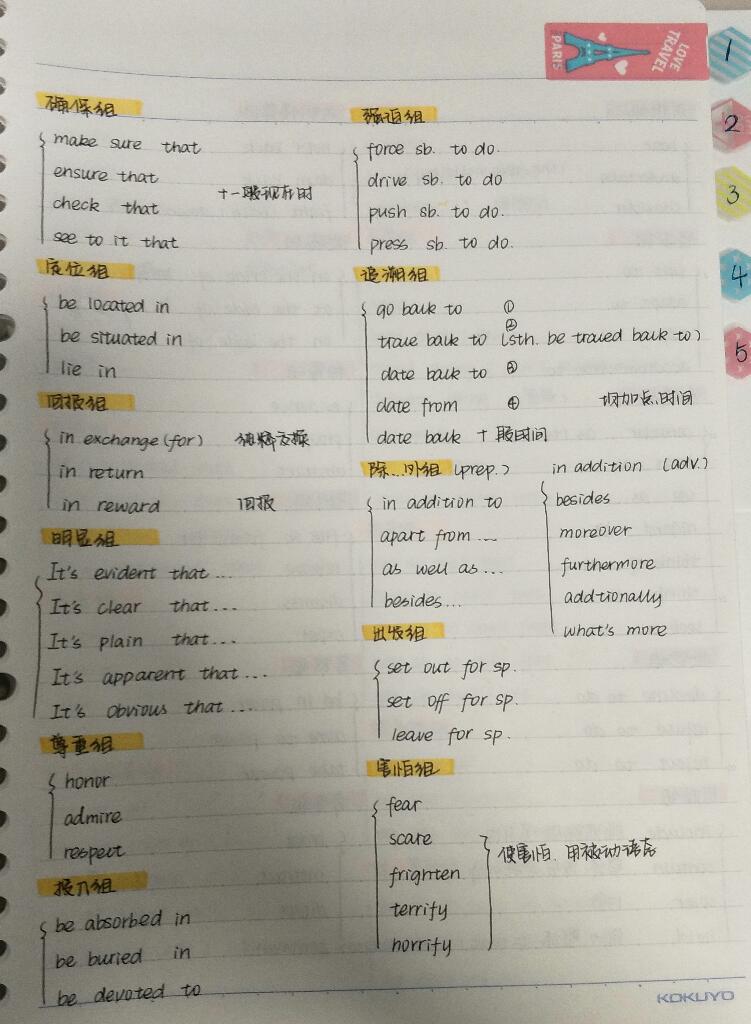 LOVE
TRAVEL
PARIS
1
2
3
4
5
确保组
make sure that
ensure that
check that
see to it that
+一般现在时
定位组
be located in
be situated in
lie in
回报组
in exchange (for) 交换
in return
in reward 回报
明显组
It's evident that...
It's clear that...
It's plain that...
It's apparent that...
It's obvious that...
尊重组
honor
admire
respect
投入组
be absorbed in
be buried in
be devoted to
强迫组
force sb. to do.
drive sb. to do
push sb. to do.
press sb. to do.
追溯组
go back to ①
trace back to ② (sth. be traced back to)
date back to ③
date from ④ 切加点时间
date back + 段时间
除...外组 (prep.)
in addition to
apart from ...
as well as ...
besides...
in addition (adv.)
besides
moreover
furthermore
addtionally
what's more
出发组
set out for sp.
set off for sp.
leave for sp.
害怕组
fear
scare
frighten
terrify
horrify
使害怕.用被动语态
KOKUYO